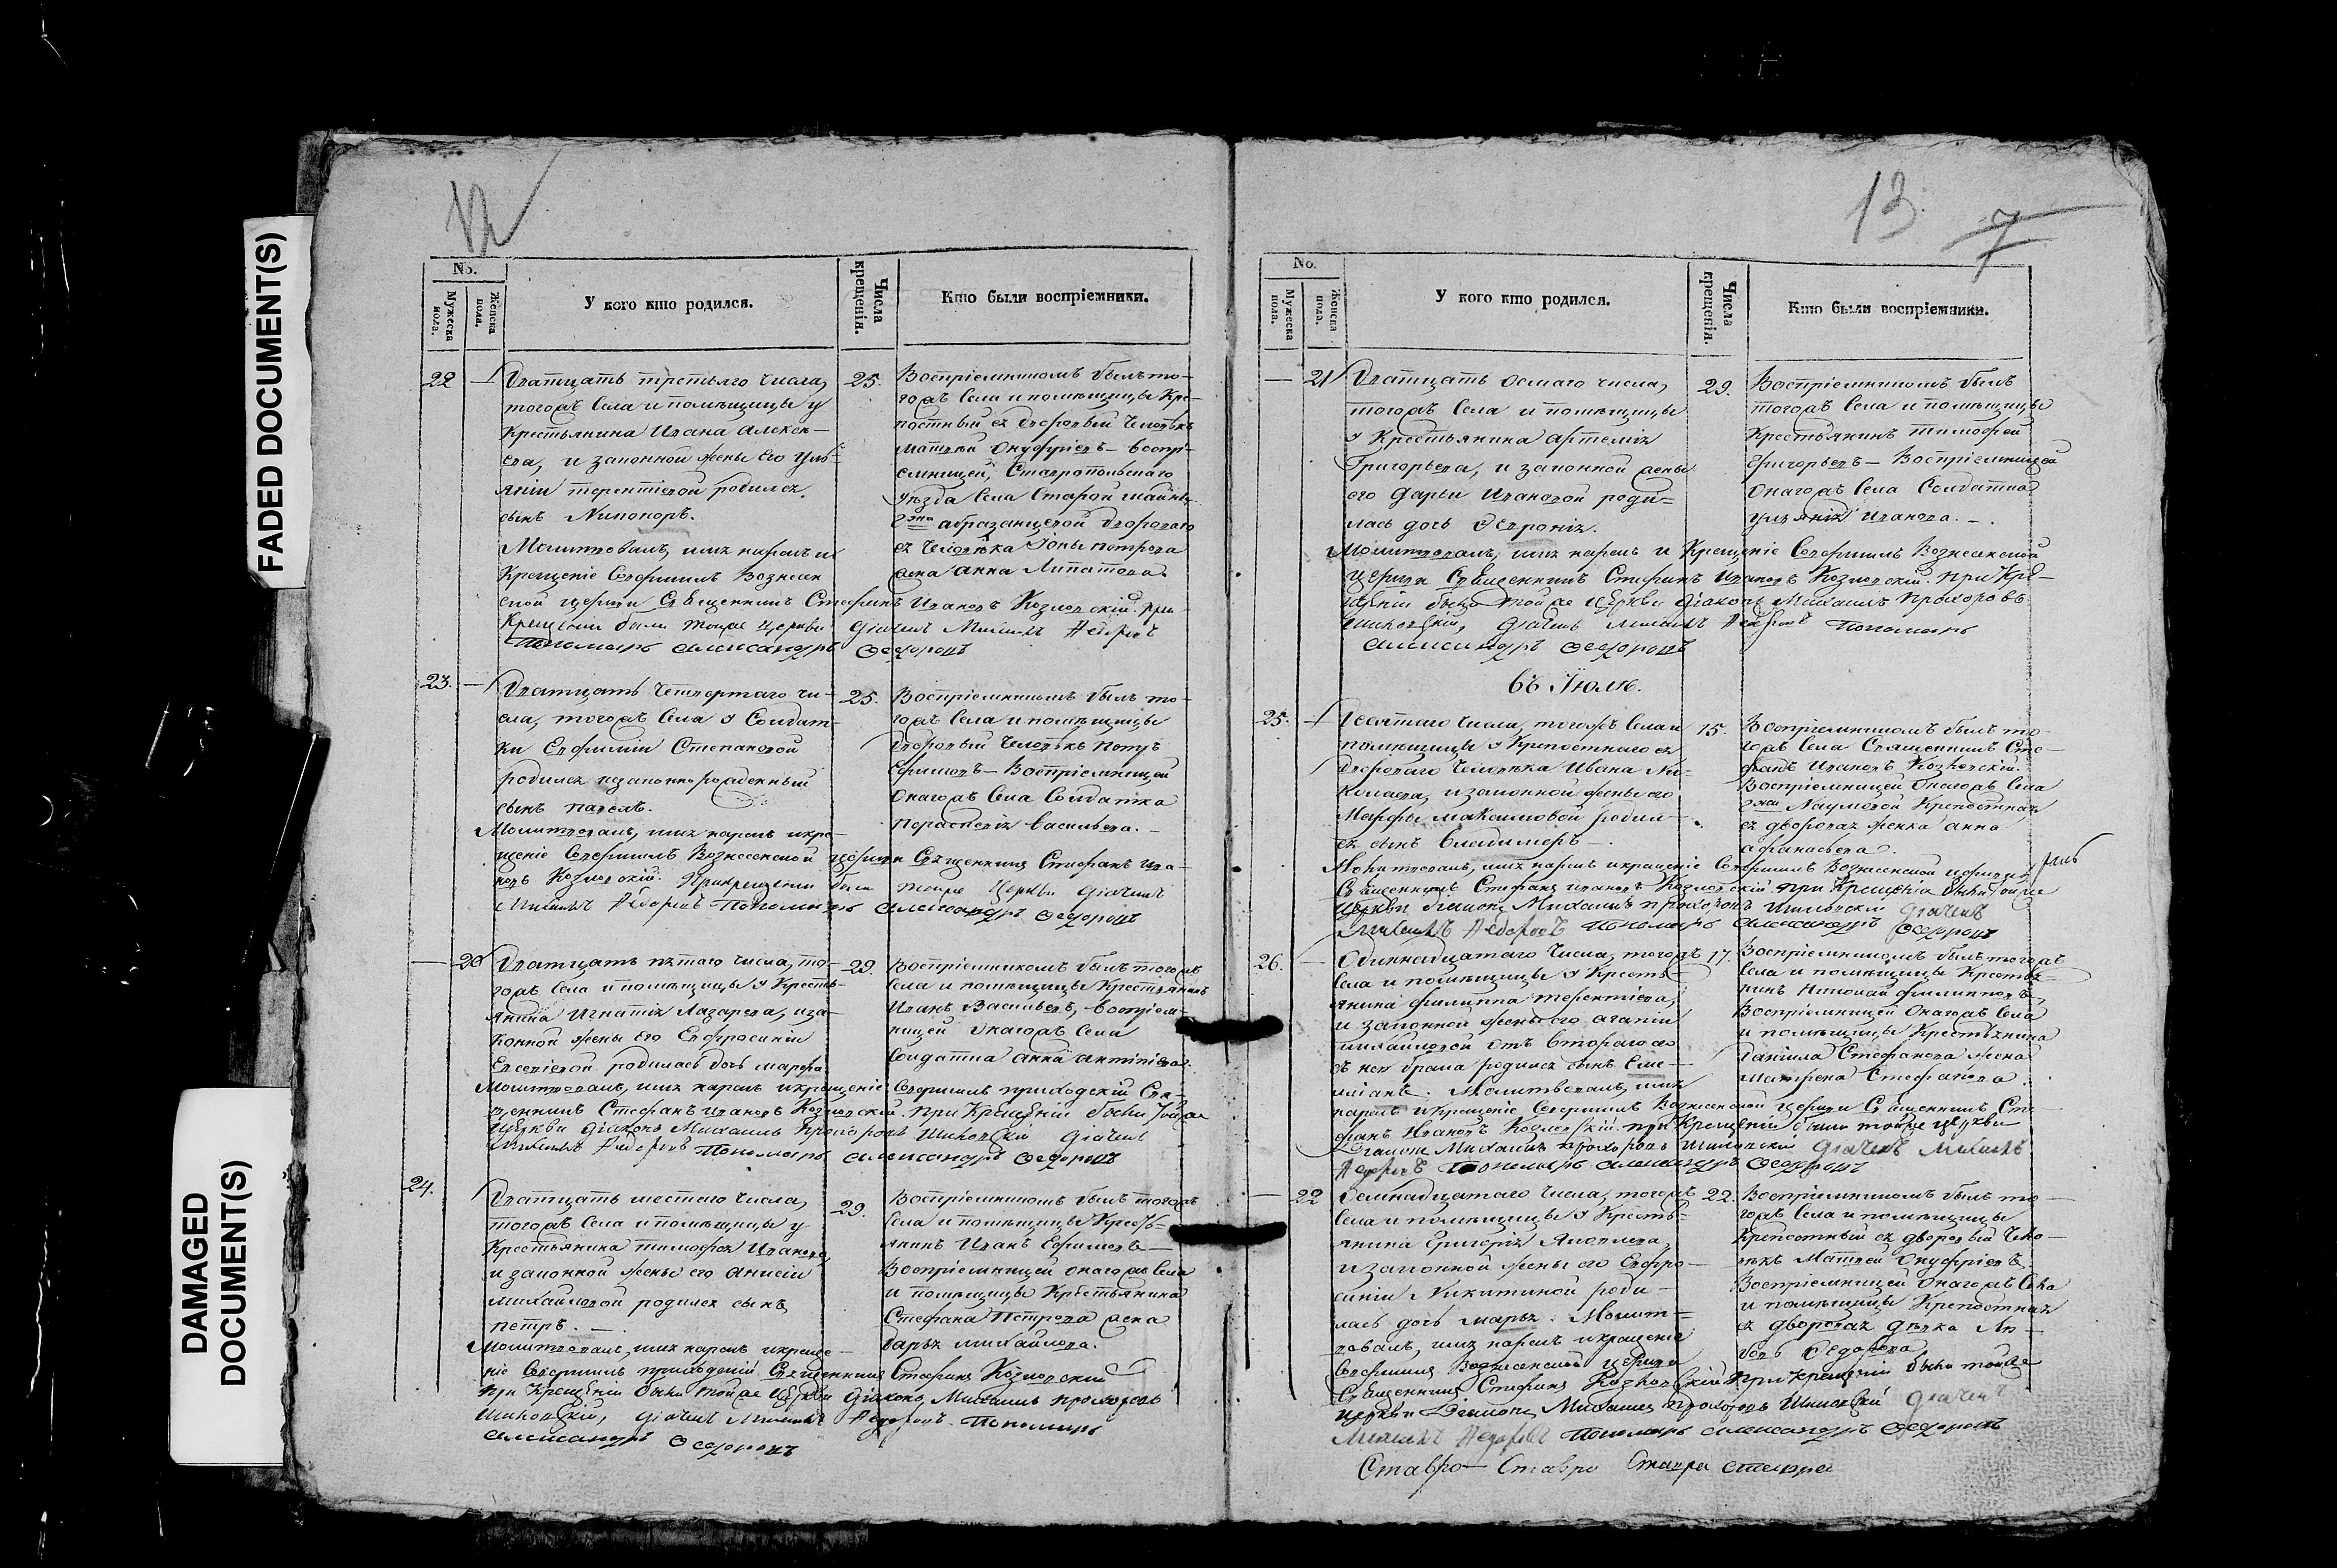 FADED DOCUMENT(S)
DAMAGED
DOCUMENT(S)
12
No.
Мужеска пола.
Женска пола.
У кого кто родился.
Числа крещенія.
Кто были воспріемники.
22
Дватцать третьяго числа,
тогожъ села и помѣщицы у
крестьянина Ивана Алексе-
ева, и законной жены его Уль-
яніи Терентіевой родился
сынъ Никоноръ.
Молитвовалъ, имя нарекъ и
крещеніе совершилъ Вознесен
ской церкви Священникъ Стефанъ Ивановъ Козловскій. при
крещеніи были тойже церкви Діячекъ Михаилъ Ѳедоровъ
Пономарь Александръ Ѳедоровъ
25.
Воспріемникомъ былъ то-
гожъ села и помѣщицы кре-
постный изъ дворовый человѣкъ
Матвей Онуфріевъ - воспрі-
емницей, Ставропольскаго
уѣзда села Старой Майны
дворового
человѣка Іоны Петрова
жена Анна Липатова.
23.
Дватцать четвертаго чи-
сла, тогожъ села у солдат-
ки Евфиміи Степановой
родился незаконнорожденный
сынъ Павелъ.
Молитвовалъ, имя нарекъ и кре-
щеніе совершилъ Вознесенской церкви Священникъ Стефанъ Ива-
новъ Козловскій. При крещеніи были тойже церкви Діячекъ
Михаилъ Ѳедоровъ Пономарь Александръ Ѳедоровъ
25.
Воспріемникомъ былъ то-
гожъ села и помѣщицы
дворовый человѣкъ Петръ
Ефимовъ - Воспріемницей
онагожъ села солдатка
Парасковія Васильева.
20
Дватцать пятаго числа, то-
гожъ села и помѣщицы у кресть-
янина Игнатія Лазарева, и за-
конной жены его Евфросиніи
Евсевіевой родилась дочь Марфа
Молитвовалъ, имя нарекъ и крещеніе совершилъ приходскій Свя-
щенникъ Стефанъ Ивановъ Козловскій. при крещеніи были тойже
церкви Діаконъ Михаилъ Прохоровъ Шиловскій Діячекъ
Михаилъ Ѳедоровъ Пономарь Александръ Ѳедоровъ
29.
Воспріемникомъ былъ тогожъ
села и помѣщицы крестьянинъ
Иванъ Васильевъ, воспріем-
ницей онагожъ села
солдатка Анна Антипіева.
24.
Дватцать шестаго числа,
тогожъ села и помѣщицы у
крестьянина Тимофея Иванова,
и законной жены его Анисіи
Михайловой родился сынъ
Петръ.
Молитвовалъ, имя нарекъ и креще-
ніе совершилъ приходскій Священникъ Стефанъ Козловскій
при крещеніи были тойже церкви Діаконъ Михаилъ Прохоровъ
Шиловскій, Діячекъ Михаилъ Ѳедоровъ. Пономарь
Александръ Ѳедоровъ
29.
Воспріемникомъ былъ тогожъ
села и помѣщицы кресть-
янинъ Иванъ Ефимовъ
Воспріемницей онагожъ села
и помѣщицы крестьянина
Стефана Петрова жена
Дарья Михайлова.
13
7
No.
Мужеска пола.
Женска пола.
У кого кто родился.
Числа крещенія.
Кто были воспріемники.
21
Дватцать осмаго числа,
тогожъ села и помѣщицы
у крестьянина Артемія
Григорьева, и законной жены
его Дарьи Ивановой роди-
лась дочь Ѳевронія.
Молитвовалъ, имя нарекъ и крещеніе совершилъ Вознесенской
церкви Священникъ Стефанъ Ивановъ Козловскій. при кре-
щеніи были тойже церкви Діаконъ Михаилъ Прохоровъ
Шиловскій, Діячекъ Михаилъ Ѳедоровъ Пономарь
Александръ Ѳедоровъ
29.
Воспріемникомъ былъ
тогожъ села и помѣщицы
крестьянинъ Тимофей
Григорьевъ - Воспріемницей
онагожъ села солдатка
Ульянія Иванова.
Въ Іюлѣ.
25.
Девятаго числа, тогожъ села и
помѣщицы у крепостнаго изъ
двороваго человѣка Ивана Ни-
колаева, и законной жены его
Марфы Максимовой родил-
ся сынъ Владимеръ
Молитвовалъ, имя нарекъ и крещеніе совершилъ Вознесенской церкви
Священникъ Стефанъ Ивановъ Козловскій при крещеніи были тойже
церкви Діаконъ Михаилъ Прохоровъ Шиловскій Діячекъ
Михаилъ Ѳедоровъ Пономарь Александръ Ѳедоровъ
15.
Воспріемникомъ былъ то-
гожъ села Священникъ Сте-
фанъ Ивановъ Козловскій.
Воспріемницей онагожъ села
Наумовой крепостная
изъ дворовая женка Анна
Афанасьева.
26.
Одиннадцатаго числа, тогожъ
села и помѣщицы у кресть-
янина Филиппа Терентіева,
и законной жены его Агапіи
Михайловой отъ втораго
брака родился сынъ Еме-
ліанъ. Молитвовалъ, имя
нарекъ и крещеніе совершилъ Вознесенской церкви Священникъ Сте-
фанъ Ивановъ Козловскій. при крещеніи были тойже церкви
Діаконъ Михаилъ Прохоровъ Шиловскій Діячекъ Михаилъ
Ѳедоровъ Пономарь Александръ Ѳедоровъ
17.
Воспріемникомъ былъ тогожъ
села и помѣщицы крестья-
нинъ Николай Филипповъ,
Воспріемницей онагожъ села
и помѣщицы крестьянина
Даніила Стефанова жена
Матрена Стефанова.
22
Семнадцатаго числа, тогожъ
села и помѣщицы у кресть-
янина Григорія Яковлева,
и законной жены его Евфро-
синіи Никитиной роди-
лась дочь Марья. Молит-
вовалъ, имя нарекъ и крещеніе
совершилъ Вознесенской церкви
Священникъ Стефанъ Козловскій при крещеніи были тойже
церкви Діаконъ Михаилъ Прохоровъ Шиловскій Діячекъ
Михаилъ Ѳедоровъ Пономарь Александръ Ѳедоровъ
22.
Воспріемникомъ былъ то-
гожъ села и помѣщицы
крепостный изъ дворовый чело-
вѣкъ Матвей Онуфріевъ.
Воспріемницей онагожъ села
и помѣщицы крепостная
изъ дворовая дѣвка Лю-
бовь Ѳедорова
Ставро Ставро Ставро